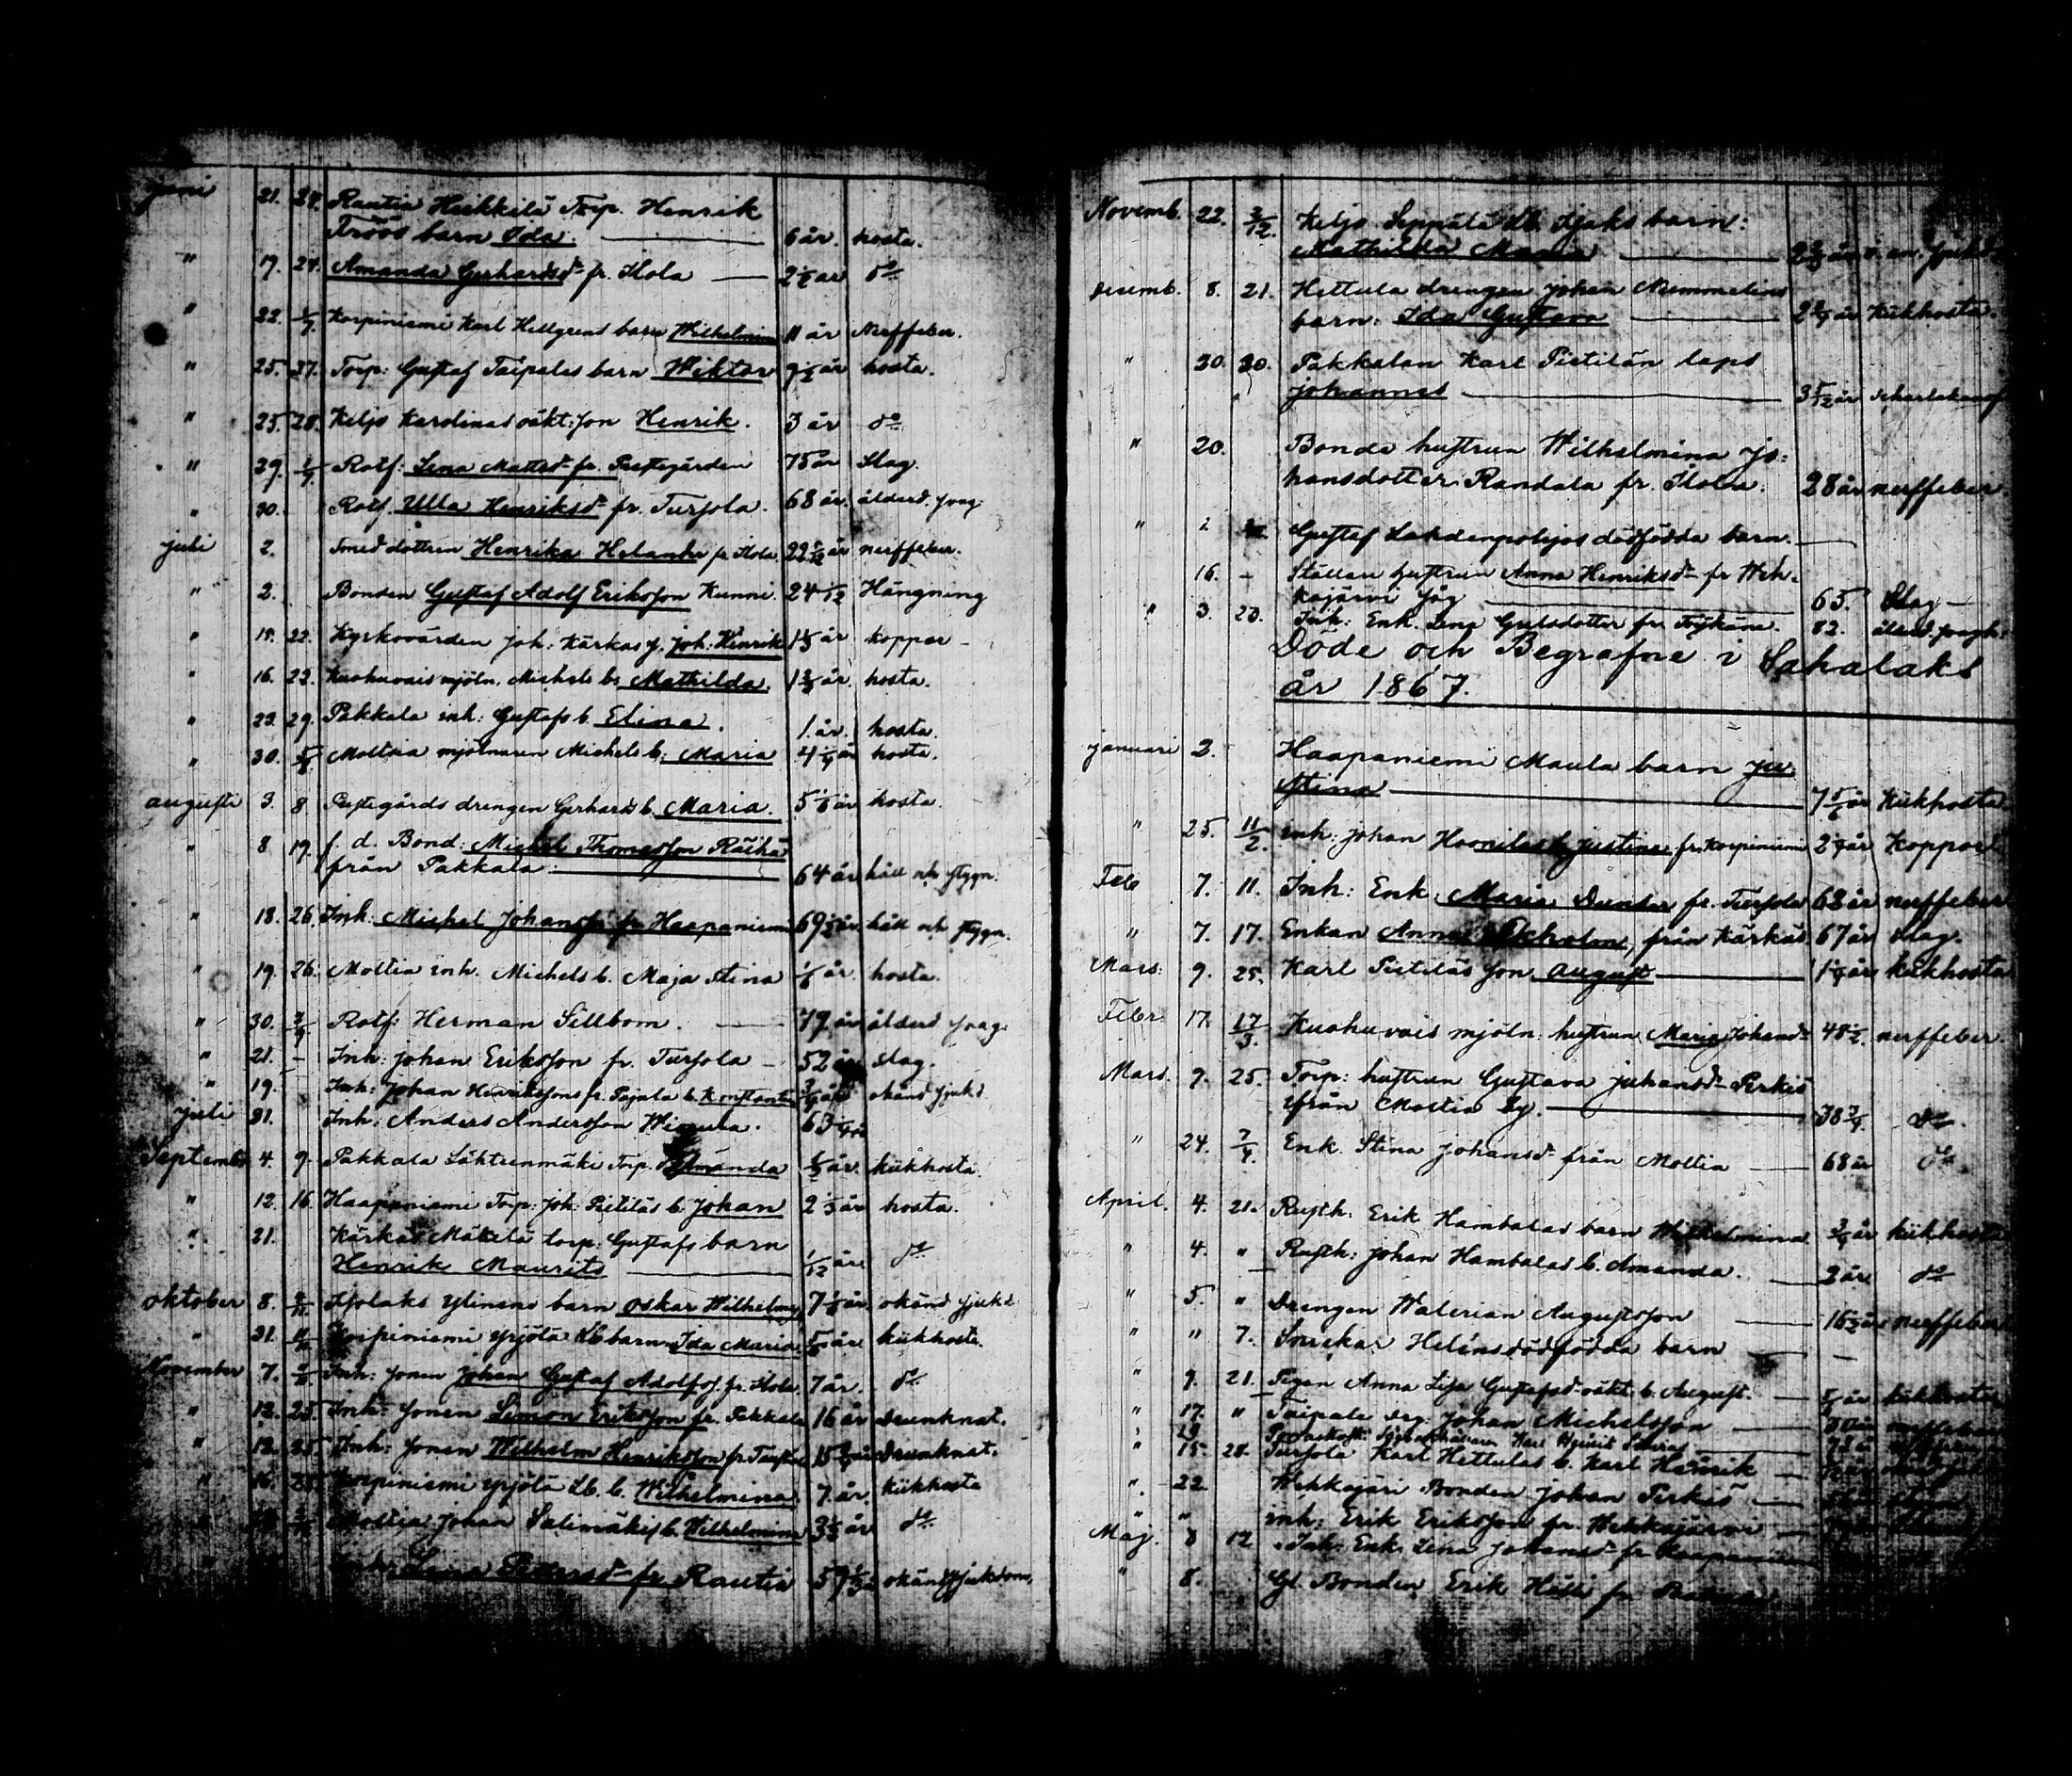 juni 21. 24. Rautia Heikkilä Torp. Henrik
Fröös barn Ida. 6 år. hosta.
" 17. 24. Amanda Gerhardsd. fr. Ilola 2½ år do
" 22. 1/7. Korpiniemi Karl Hellgrens barn Wilhelmina 11 år Nerffeber.
" 25. 27. Torp: Gustaf Taipales barn Wiktor år hosta.
" 25. 28. Keljo Karolinas oäkt. son Henrik. 3 år do
" 29. Rotf. Lena Mattsd. fr. Prestgården 75 år Slag.
" 30. Rotf. Ulla Henriksd. fr. Tursola. 68 år. ålderd. svag
juli 2. Smed dottren Henrika Helander fr Ilola. 22 år nerffeber.
" 2. Bonden Gustaf Adolf Eriksson Kunni. 24 1/12 Hängning
" 15. 22. Kyrkovärden Joh: Kärkäs s. Joh: Henrik år koppor
" 16. 22. Kuohuvais mjöln. Michels b. Mathilda. år. hosta.
" 23. 29. Pakkala inh: Gustafs b. Elina. 1 år. hosta.
" 30. 5/8. Moltsia mjölnaren Michels b. Maria 4 ¼ år hosta.
augusti 3. 8 Prestgårds drengen Gerhards b. Maria. 5 år hosta.
" 8 19. f. d. Bond: Michel Thomasson Räihä
från Pakkala. 64 år håll och stygn.
" 18. 26. Inh: Michel Johansson fr Haapaniemi 69½ år. håll och stygn.
" 19. 26. Moltia inh. Michels b. Maja Stina år. hosta.
" 30. Rotf: Herman Sillbom. 79 år ålderd svag.
" 21. – Inh: Johan Eriksson fr. Tursola 52 år slag.
" 19. Inh: Johan Henrikssons fr. Pajula b. Konstantin år okänd sjukd
juli 31. Inh: Anders Andersson 63 ¼ år
September 4. 9. Pakkala Torp. Amanda år. kikhosta.
" 12. 16. Haapaniemi Torp: Joh: Pietiläs b. Johan 2 år hosta.
" 21. Kärkäs Mäkelä torp: Gustafs barn
Henrik Maurits 1/12 år do
oktober 8. barn Oskar Wilhelm 7 år. okänd sjukd
" 31. Korpiniemi Yrjölä barn Ida Maria år. kikhosta.
November 7. Inh: sonen Johan Gustaf Adolfss. fr. Ilola 7 år. do
" 12. 25. Inh: sonen Simon Eriksson fr. Pakkala 16 år Drunknat.
" 12. 25. Inh: sonen Wilhelm Henriksson fr. Tursola 15 år Drunknat.
" 16. 25. Korpiniemi Yrjölä Lb. b. Wilhelmina 7 år. kikhosta
Moltia Johan b. Wilhelmina 3½ år do
Lena fr Rautia okänd sjukdom.
Novemb. 22. 2/12. Keljo Seppälä Lb. Isaks barn:
Mathilda Maria
Decemb. 8. 21. Hettula drengen Johan Nummelins
barn: Ida Gustava år kikhosta.
" 20. 30. Pakkalan Karl Pietilän laps
Johannes 3 5/12 år scharlakansf
" 20. Bonde hustrun Wilhelmina Jo:
hansdotter Randala fr. Ilola. 28 år nerffeber.
" 2 Gustaf Lahdenpohjas dödfödda barn.
16. – hustrun Anna Henriksd. fr Weh-
kajärvi by 65. Slag
" 3. 23. Inh: Enk. Lena
Döde och Begrafne i Sahalaks
år 1867.
januari 2. Haapaniemi Maula barn Ju
stina 7 5/6 år Kikhosta
" 25. 11/2. inh. Johan b. Justina fr. Korpiniemi 2¼ år Koppor
Feb 7. 11. Inh: Enk. Maria Dunder fr. Tursola 68 år nerffeber
" 7. 17. Enkan Anna Ekholm, från Kärkäs 67 år slag.
Mars. 9. 25. Karl Pietiläs son August 1 ¼ år kikhosta
Febr: 17. 17/3. Kuohuvais mjöln. hustrun Maria Johansd. 48½. nerffeber.
Mars. 9. 25. Torp: hustrun Gustava Johansd. Perkiö
från Moltia by. 38 ¾ do.
" 24. 7/4. Enk. Stina Johansd. från Moltia 68 år do.
April. 4. 21. Rusth. Erik Hambalas barn Wilhelmina ¾ år kikhosta
" 4. " Rusth: Johan Hambalas b. Amanda. 2 år do
" 5. " Drengen Walerian Augustsson 16½ år nerffeber
" " 7. Snickar Heléns dödfödda barn
" 9. 21. Pigan Anna Lisa Gustafsd. oäkt. b. August. år kikhosta
" 17. " Taipale drg. Johan Michelsson
" 29. Karl Henrik
" 15. 28. Tursola Karl Hettulas b. Karl Henrik
" 22 Wehkajärvi Bonden Johan Perkiö
" " inh: Erik Eriksson fr. Wehkajärvi
Maj. 8 12 Inh: Enk. Lena Johansd. fr Haapaniemi
" 8. Gl Bonden Erik